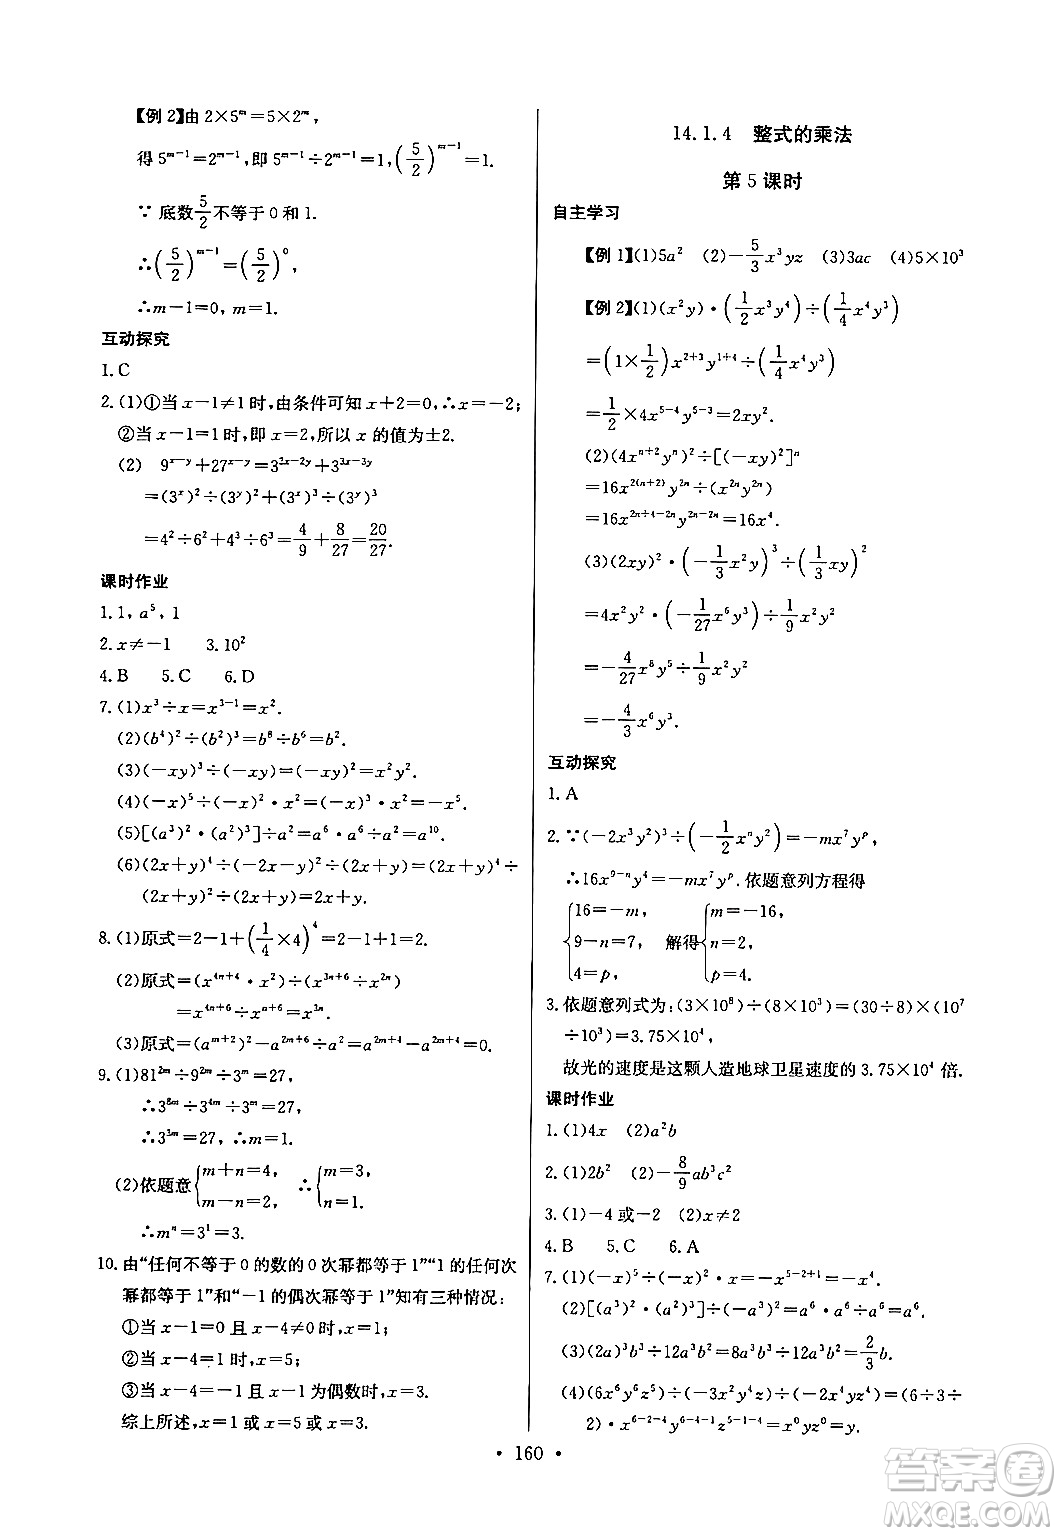 【例 2】由 2×5^m=5×2^m,
得 5^{m-1}=2^{m-1},即 5^{m-1}÷2^{m-1}=1,(5/2)^{m-1}=1.
∵ 底数5/2不等于 0 和 1.
∴(5/2)^{m-1}=(5/2)^0,
∴m-1=0,m=1.
互动探究
1.C
2.(1)①当 x-1≠1 时,由条件可知 x+2=0,∴x=-2;
②当 x-1=1 时,即 x=2,所以 x 的值为±2.
(2) 9^{x-y}+27^{x-y}=3^{2x-2y}+3^{3x-3y}
=(3^x)^2÷(3^y)^2+(3^x)^3÷(3^y)^3
=4^2÷6^2+4^3÷6^3=4/9+8/27=20/27.
课时作业
1.1,a^5,1
2.x≠-1 3.10^2
4.B 5.C 6.D
7.(1)x^3÷x=x^{3-1}=x^2.
(2)(b^4)^2÷(b^2)^3=b^8÷b^6=b^2.
(3)(-xy)^3÷(-xy)=(-xy)^2=x^2y^2.
(4)(-x)^5÷(-x)^2·x^2=-x^3·x^2=-x^5.
(5)[(a^3)^2·(a^2)^3]÷a^2=a^6·a^6÷a^2=a^{10}.
(6)(2x+y)^4÷(-2x-y)^2÷(2x+y)=(2x+y)^4÷
(2x+y)^2÷(2x+y)=2x+y.
8.(1)原式=2-1+(1/4×4)^4=2-1+1=2.
(2)原式=(x^{4n+4}·x^2)÷(x^{3n+6}÷x^{2n})
=x^{4n+6}÷x^{n+6}=x^{3n}.
(3)原式=(a^{m+2})^2-a^{2m+6}÷a^2=a^{2m+4}-a^{2m+4}=0.
9.(1)81^{2m}÷9^{2m}÷3^m=27,
∴3^{8m}÷3^{4m}÷3^m=27,
∴3^{3m}=27,∴m=1.
(2)依题意{m+n=4, m-n=2, ∴{m=3, n=1.
∴m^n=3^1=3.
10.由“任何不等于 0 的数的 0 次幂都等于 1”“1 的任何次
幂都等于 1”和“-1 的偶次幂等于 1”知有三种情况:
①当 x-1=0 且 x-4≠0 时,x=1;
②当 x-4=1 时,x=5;
③当 x-4=-1 且 x-1 为偶数时,x=3.
综上所述,x=1 或 x=5 或 x=3.
14.1.4 整式的乘法
第 5 课时
自主学习
【例 1】(1)5a^2 (2)-5/3x^3yz (3)3ac (4)5×10^3
【例 2】(1)(x^2y)·(1/2x^3y^4)÷(1/4x^4y^3)
=(1×1/2)x^{2+3}y^{1+4}÷(1/4x^4y^3)
=1/2×4x^{5-4}y^{5-3}=2xy^2.
(2)(4x^{n+2}y^n)^2÷[(-xy)^2]^n
=16x^{2(n+2)}y^{2n}÷(x^{2n}y^{2n})
=16x^{2n+4-2n}y^{2n-2n}=16x^4.
(3)(2xy)^2·(-1/3x^2y)^3÷(1/3xy)^2
=4x^2y^2·(-1/27x^6y^3)÷1/9x^2y^2
=-4/27x^8y^5÷1/9x^2y^2
=-4/3x^6y^3.
互动探究
1.A
2.∵(-2x^3y^2)^3÷(-1/2x^ny^2)=-mx^7y^p,
∴16x^{9-n}y^4=-mx^7y^p.依题意列方程得
{16=-m, 9-n=7, 4=p, 解得{m=-16, n=2, p=4.
3.依题意列式为:(3×10^8)÷(8×10^3)=(30÷8)×(10^7
÷10^3)=3.75×10^4,
故光的速度是这颗人造地球卫星速度的 3.75×10^4 倍.
课时作业
1.(1)4x (2)a^2b
2.(1)2b^2 (2)-8/9ab^3c^2
3.(1)-4 或-2 (2)x≠2
4.B 5.C 6.A
7.(1)(-x)^5÷(-x)^2·x=-x^{5-2+1}=-x^4.
(2)[(a^3)^2·(a^2)^3]÷(-a^2)^3=a^6·a^6÷a^6=a^6.
(3)(2a)^3b^3÷12a^3b^2=8a^3b^3÷12a^3b^2=2/3b.
(4)(6x^6y^6z^5)÷(-3x^2y^4z)÷(-2x^4yz^4)=(6÷3÷
2)·x^{6-2-4}y^{6-4-1}z^{5-1-4}=x^0yz^0=y.
· 160 ·
答案圈
MXQE.COM